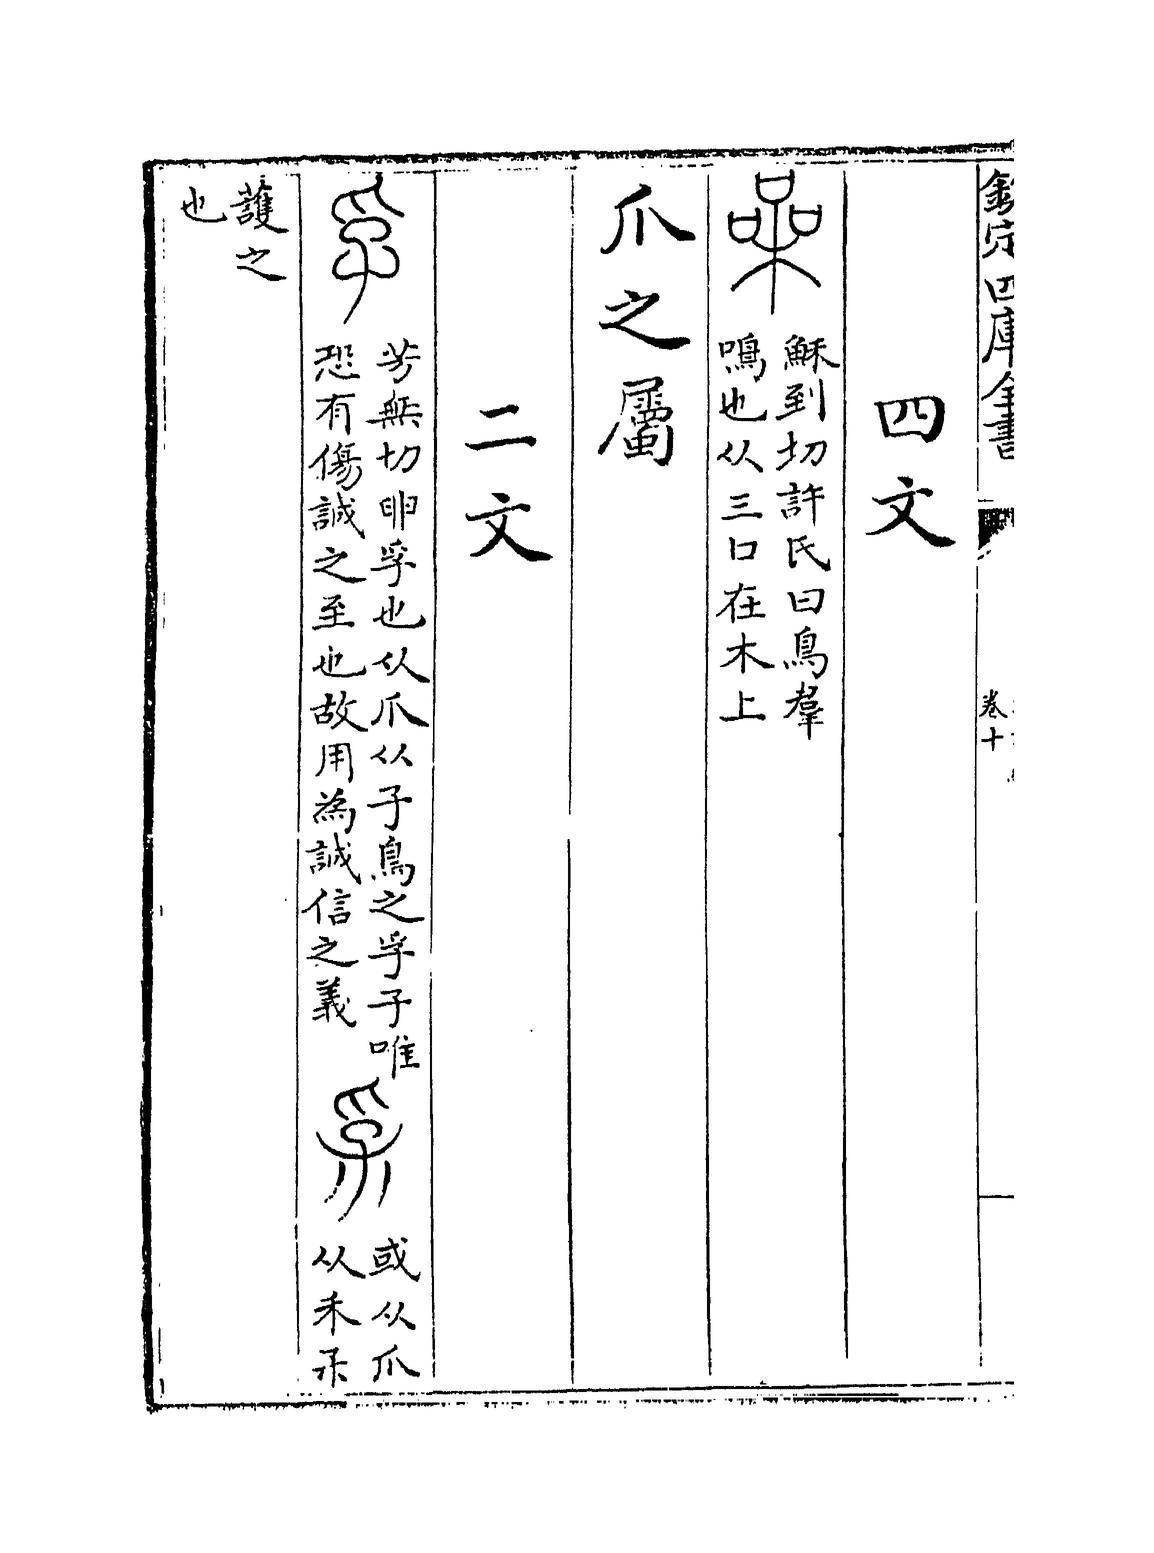 欽定四庫全書
卷十
四文
喿
穌到切許氏曰鳥羣
鳴也从三口在木上
爪之屬
二文
孚
芳無切卵孚也从爪从子鳥之孚子唯
恐有傷誠之至也故用為誠信之義
或从爪
从禾
護之
也